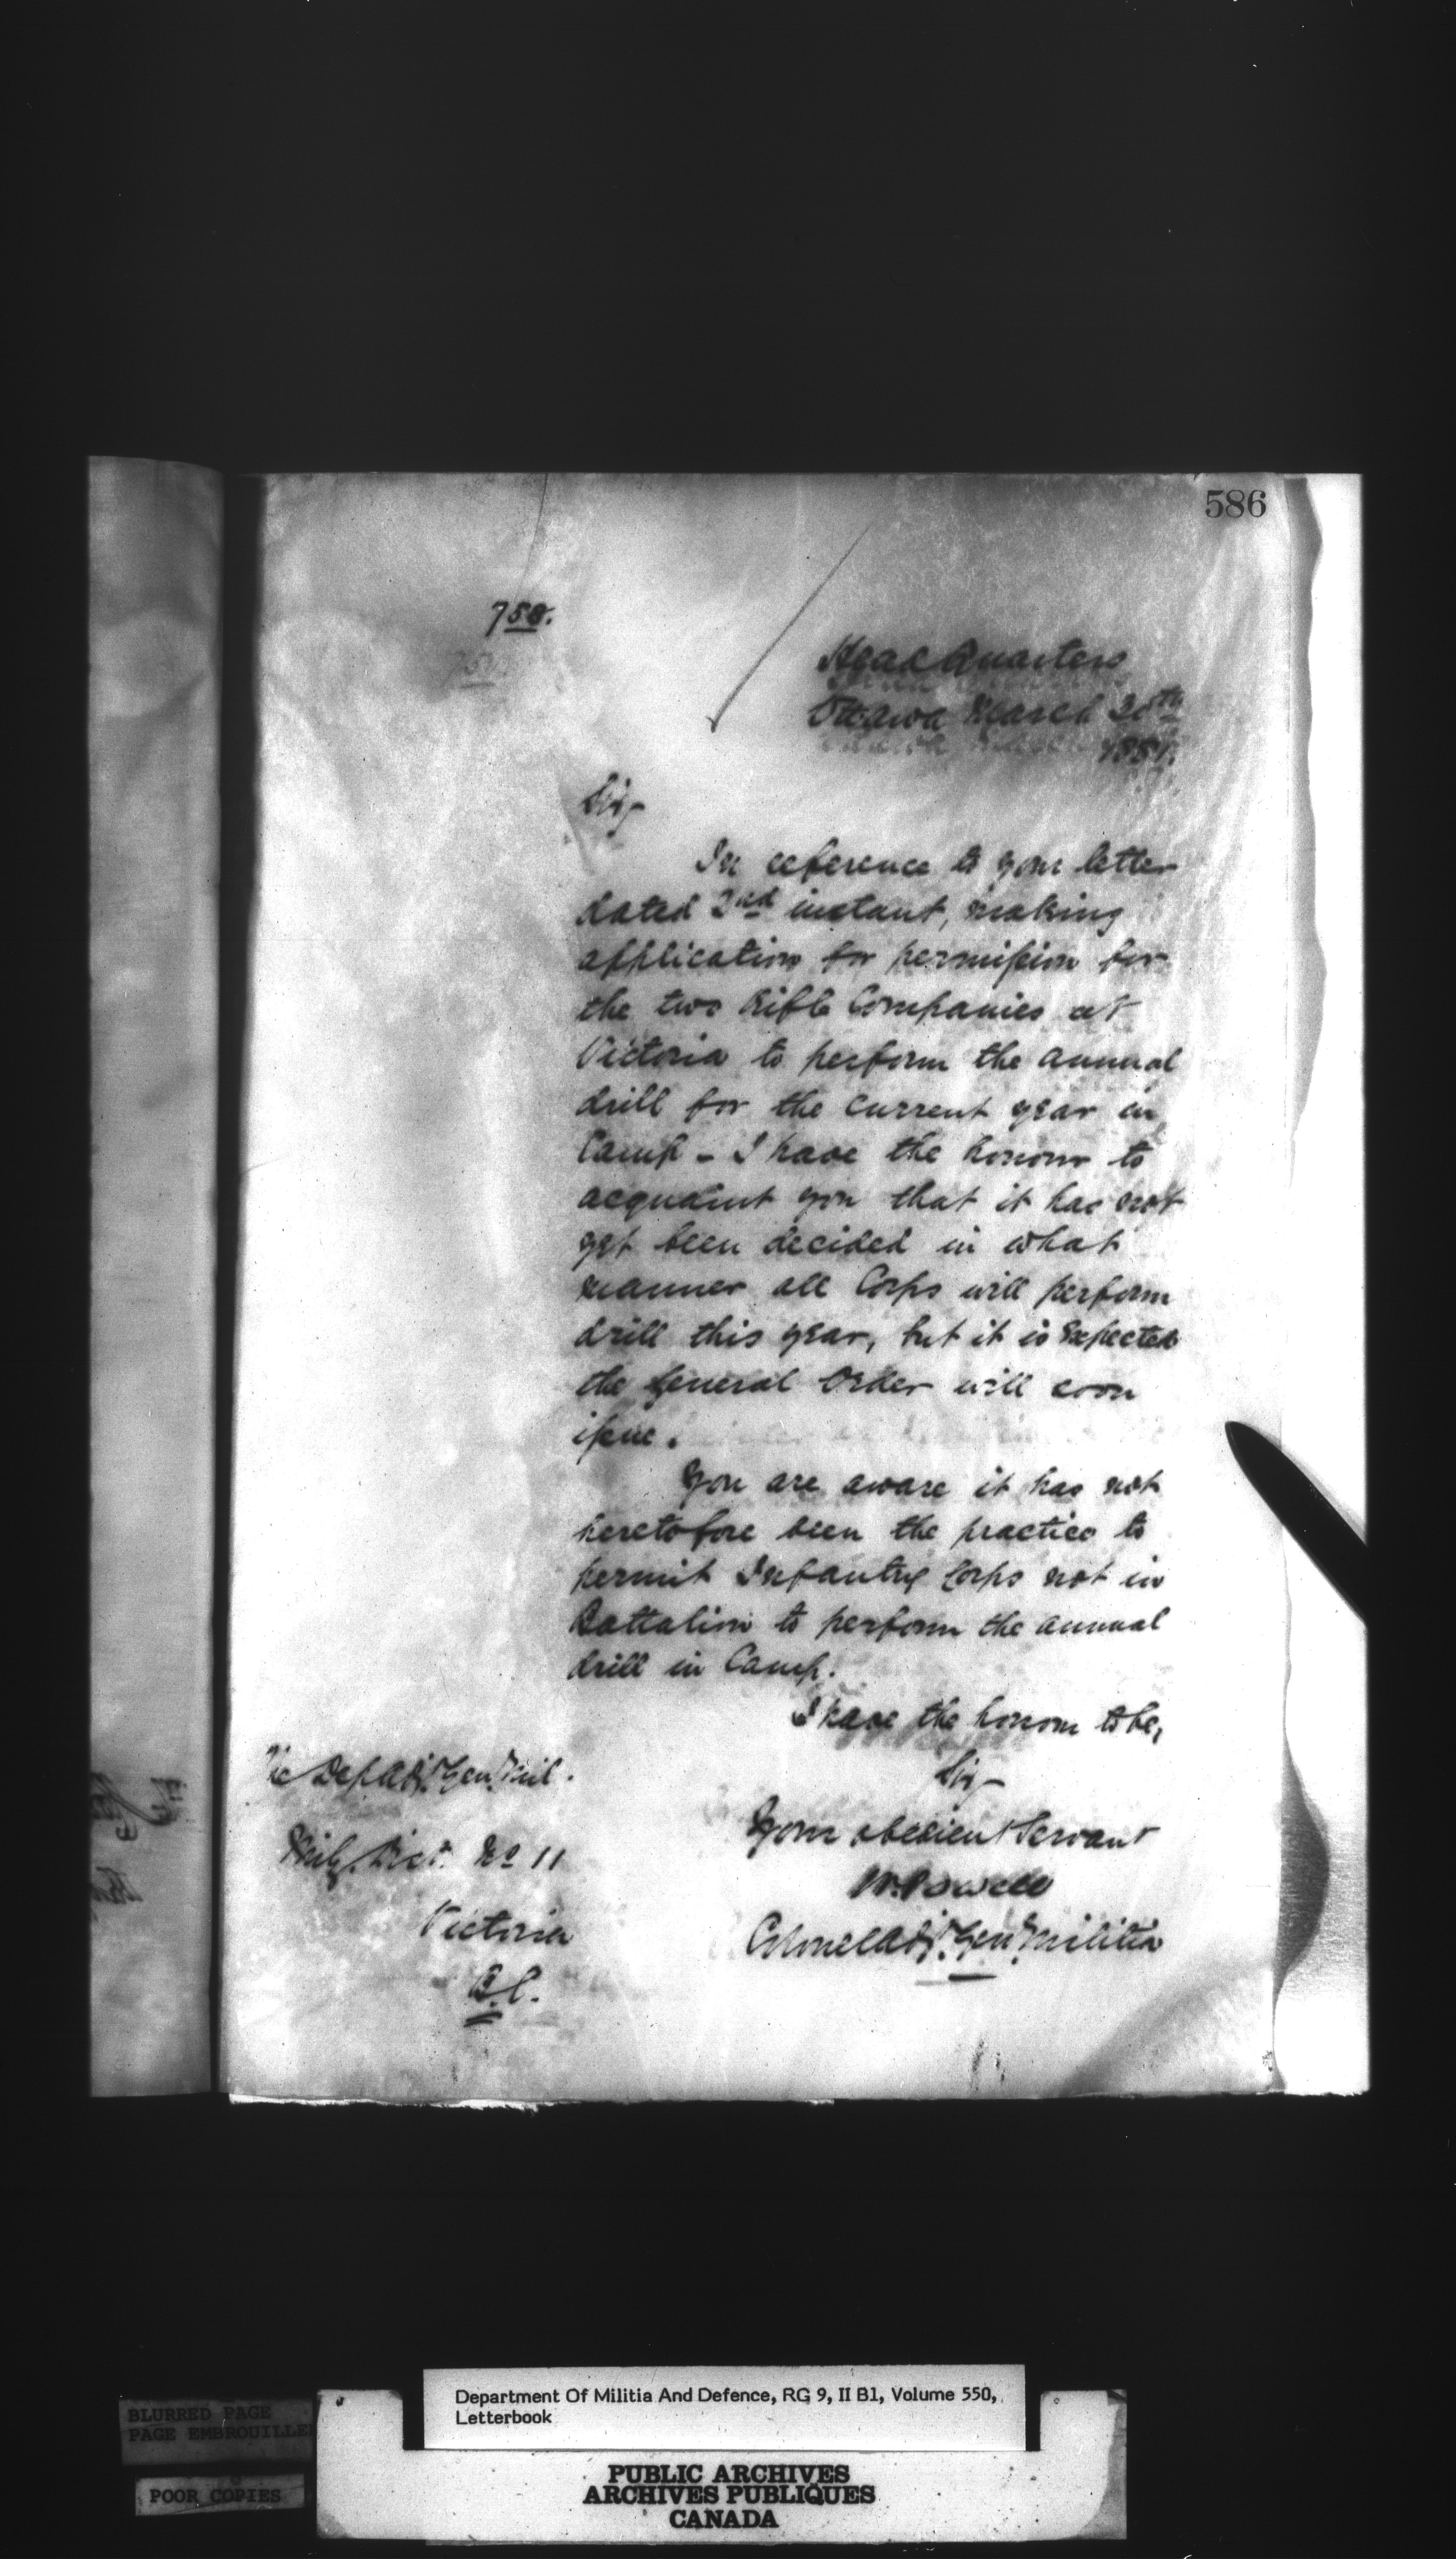 586
750.
Head Quarters
Ottawa March 30th
1881.
Sir,
In reference to your letter
dated 2nd instant, making
application for permission for
the two Rifle Companies at
Victoria to perform the annual
drill for the current year in
Camp - I have the honour to
acquaint you that it has not
yet been decided in what
manner all Corps will perform
drill this year, but it is expected
the General Order will soon
issue.
You are aware it has not
heretofore been the practice to
permit Infantry Corps not in
Battalion to perform the annual
drill in Camp.
I have the honour to be,
Sir,
Your obedient Servant
W. Powell
Colonel Adjt. Genl. Militia
The Dep. Adjt. Genl. Mil.
Mily. Dist. No 11
Victoria
B.C.
BLURRED PAGE
PAGE EMBROUILLEE
POOR COPIES
Department Of Militia And Defence, RG 9, II B1, Volume 550,
Letterbook
PUBLIC ARCHIVES
ARCHIVES PUBLIQUES
CANADA